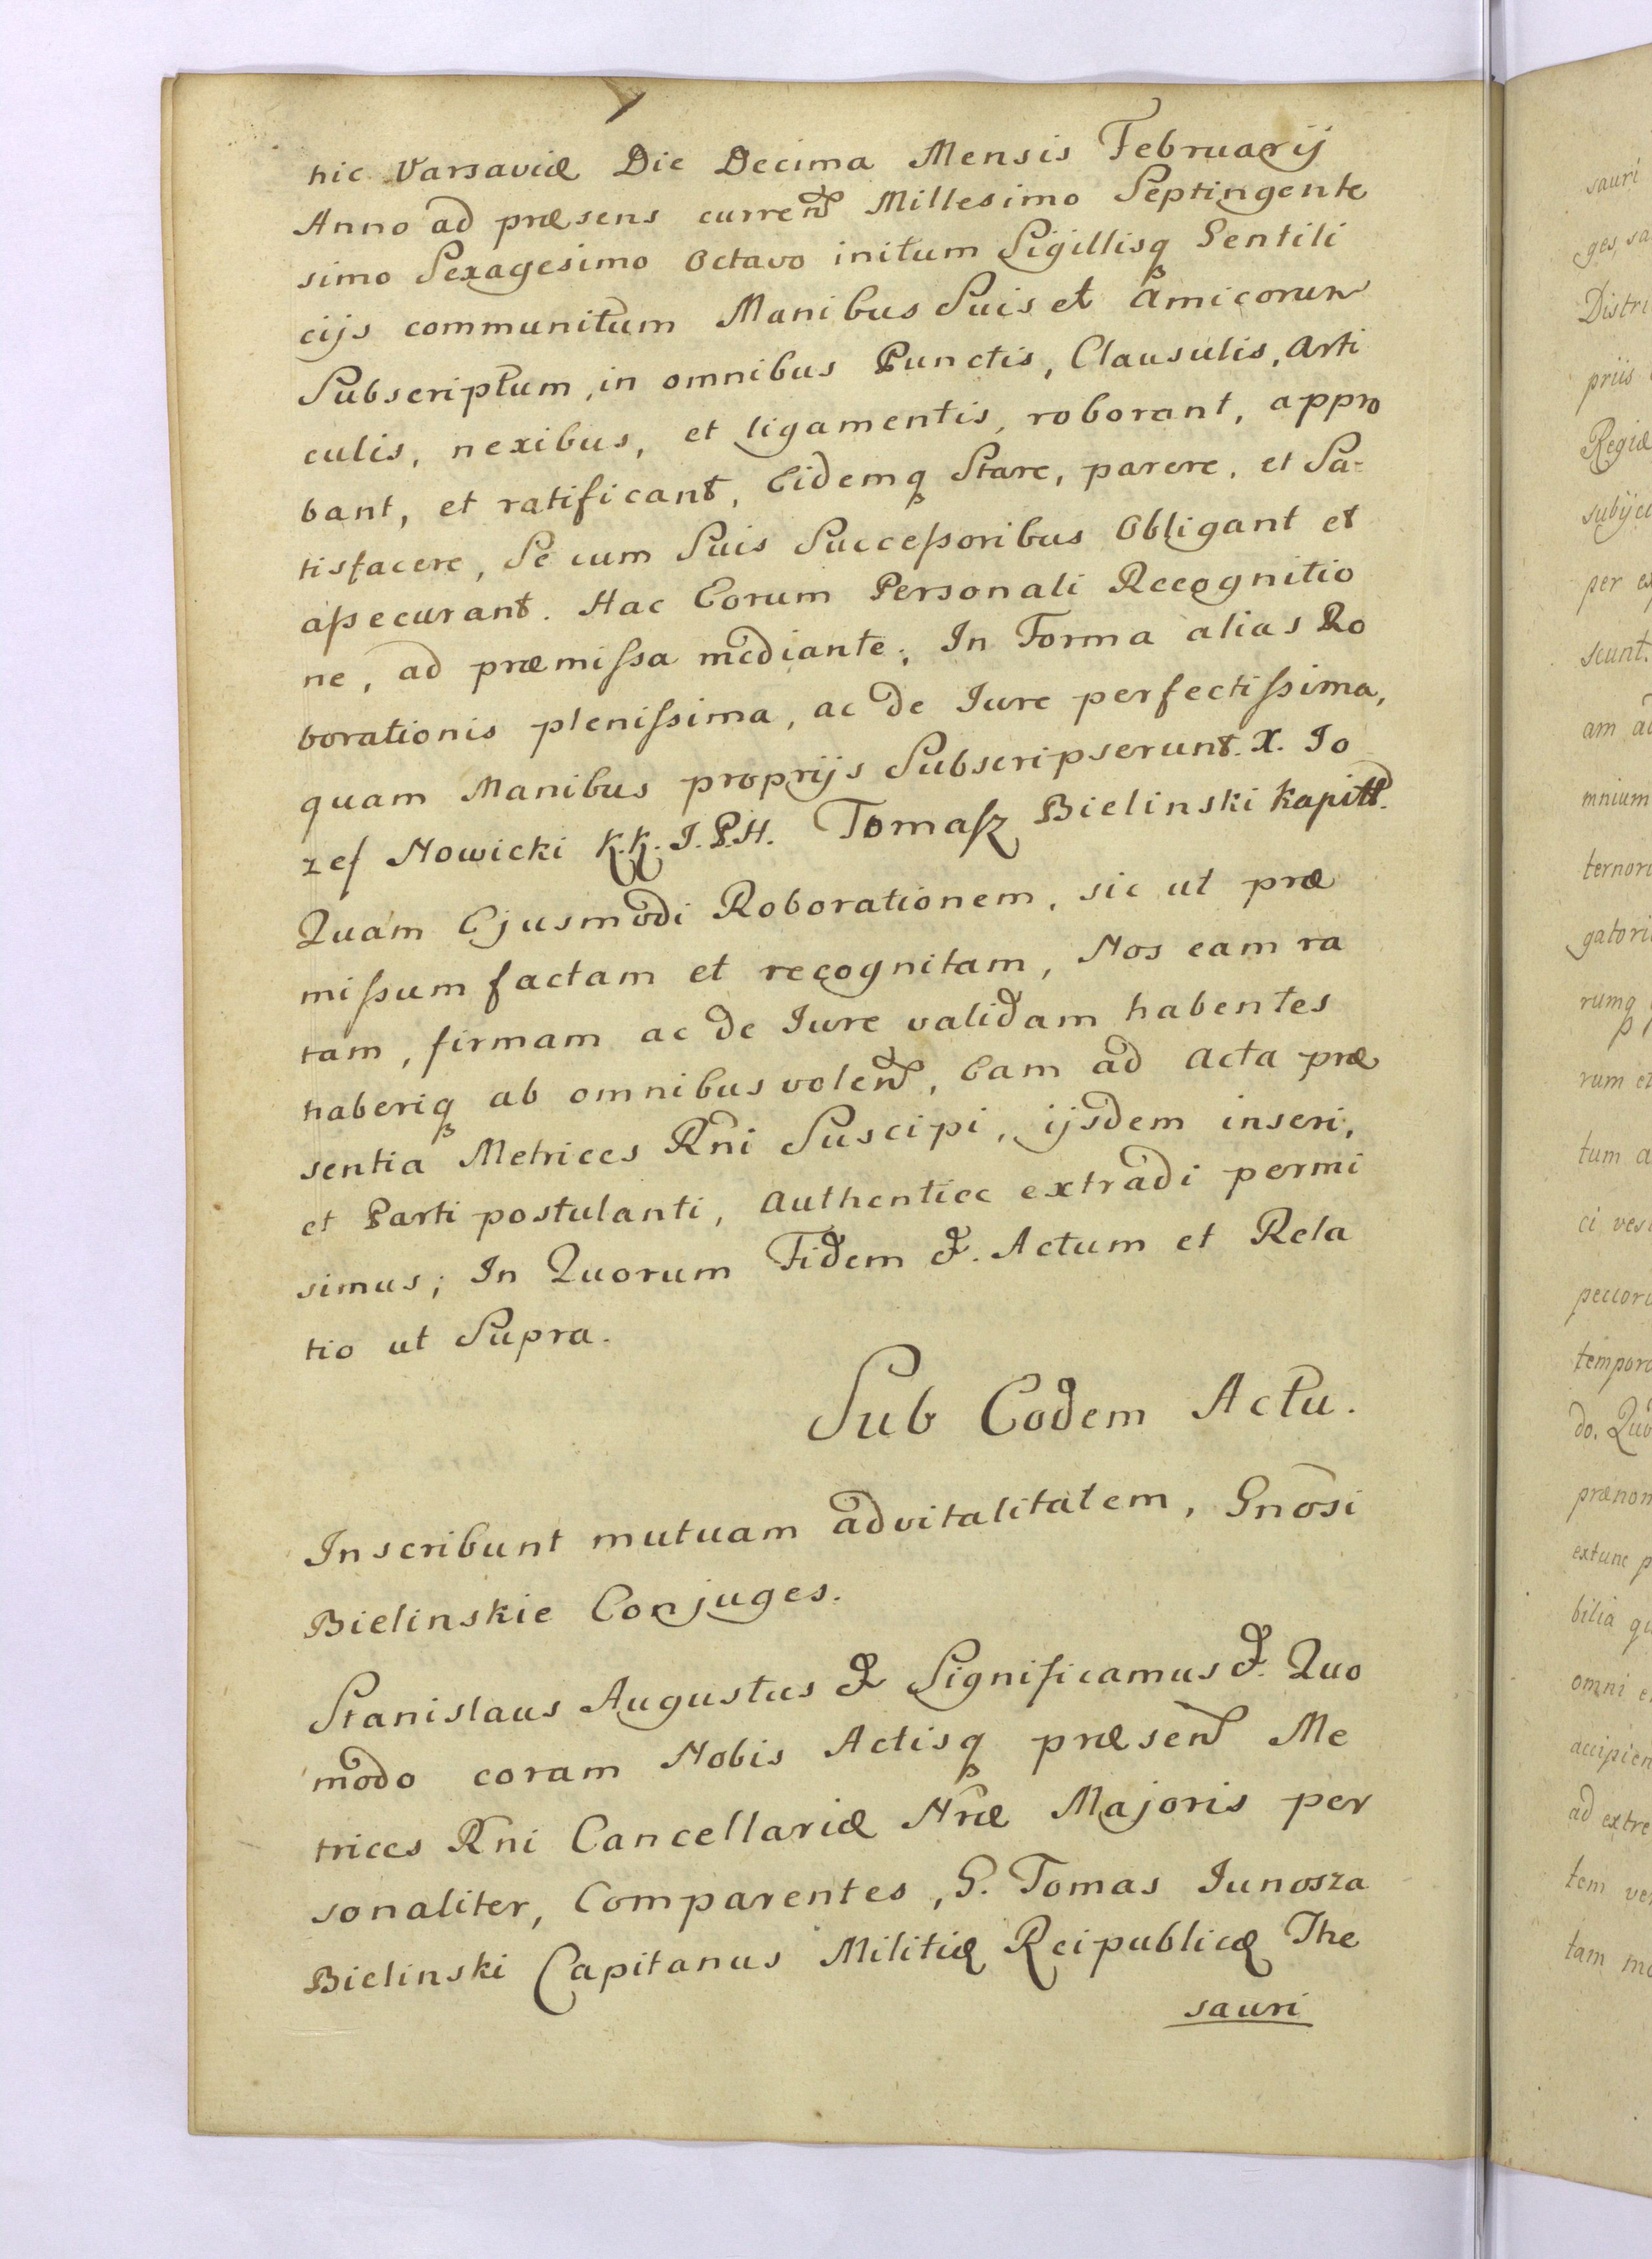 hic Varsaviæ Die Decima Mensis Februarij
Anno ad præsens curren̄ Millesimo Septingente
simo Sexagesimo Octavo initum Sigillisq Gentili
cijs communitum Manibus Suis et Amicorum
Subscriptum, in omnibus Punctis, Clausulis, Arti
culis, nexibus, et ligamentis, roborant, appro
bant, et ratificant, Eidemq Stare, parere, et Sa=
tisfacere, Se cum Suis Succeſsoribus Obligant et
aſsecurant. Hac Eorum Personali Recognitio
ne, ad præmiſsa mediante; In Forma alias Ro
borationis pleniſsima, ac de Iure perfectiſsima,
quam Manibus proprijs Subscripserunt. X. Io
zef Nowicki K.K. J.P.H. Tomaſz Bielinski Kapitt.
Quam Ejusmodi Roborationem, sic ut præ
miſsum factam et recognitam, Nos eam ra
tam, firmam ac de Iure validam habentes
haberiq ab omnibus volen̄, Eam ad Acta præ
sentia Metrices Rñi Suscipi, ijsdem inseri,
et Parti postulanti, Authentice extradi permi
simus; In Quorum Fidem &. Actum et Rela
tio ut Supra.
Sub Eodem Actu.
Inscribunt mutuam advitalitatem, Gnōsi
Bielinskie Conjuges.
Stanislaus Augustus & Significamus &. Quo
modo coram Nobis Actisq præsen̄ Me
trices Rñi Cancellariæ Nræ Majoris per
sonaliter, Comparentes, G. Tomas Iunosza
Bielinski Capitanus Militiæ Reipublicæ The
sauri
sauri
ges, sa
Distri
priis
Regiæ
subijci
per
scunt.
am ad
mnium
ternor
gatori
rumq
rum et
tum a
ci ves
pecor
tempor
do. Quo
prænom
extunc p
bilia qu
omni e
accipien
ad extre
tem ve
tam mo